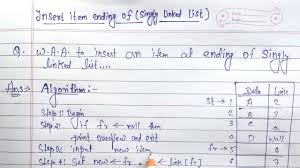 Insert item ending of (Singly linked list)
Q. W.A.A. to insert an item at ending of Singly
linked list....
Ans> Algorithm:-
Data Link
St → 1 A 2
Step 1: Begin
2 B
Step 2: if fr ← null then
C
print overflow and exit
D Null
Step 3: input new item
fr → 5
Step 4: Get new ← fr, fr ← link [fr]